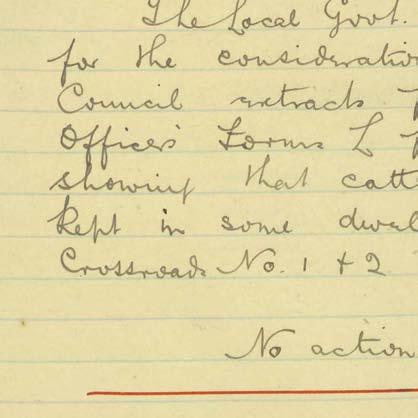 The Local Govt.
for the consideratio
Council extracts
Officers Forms L
showing that catt
kept in some dwel
Crossroads No. 1 & 2
No action